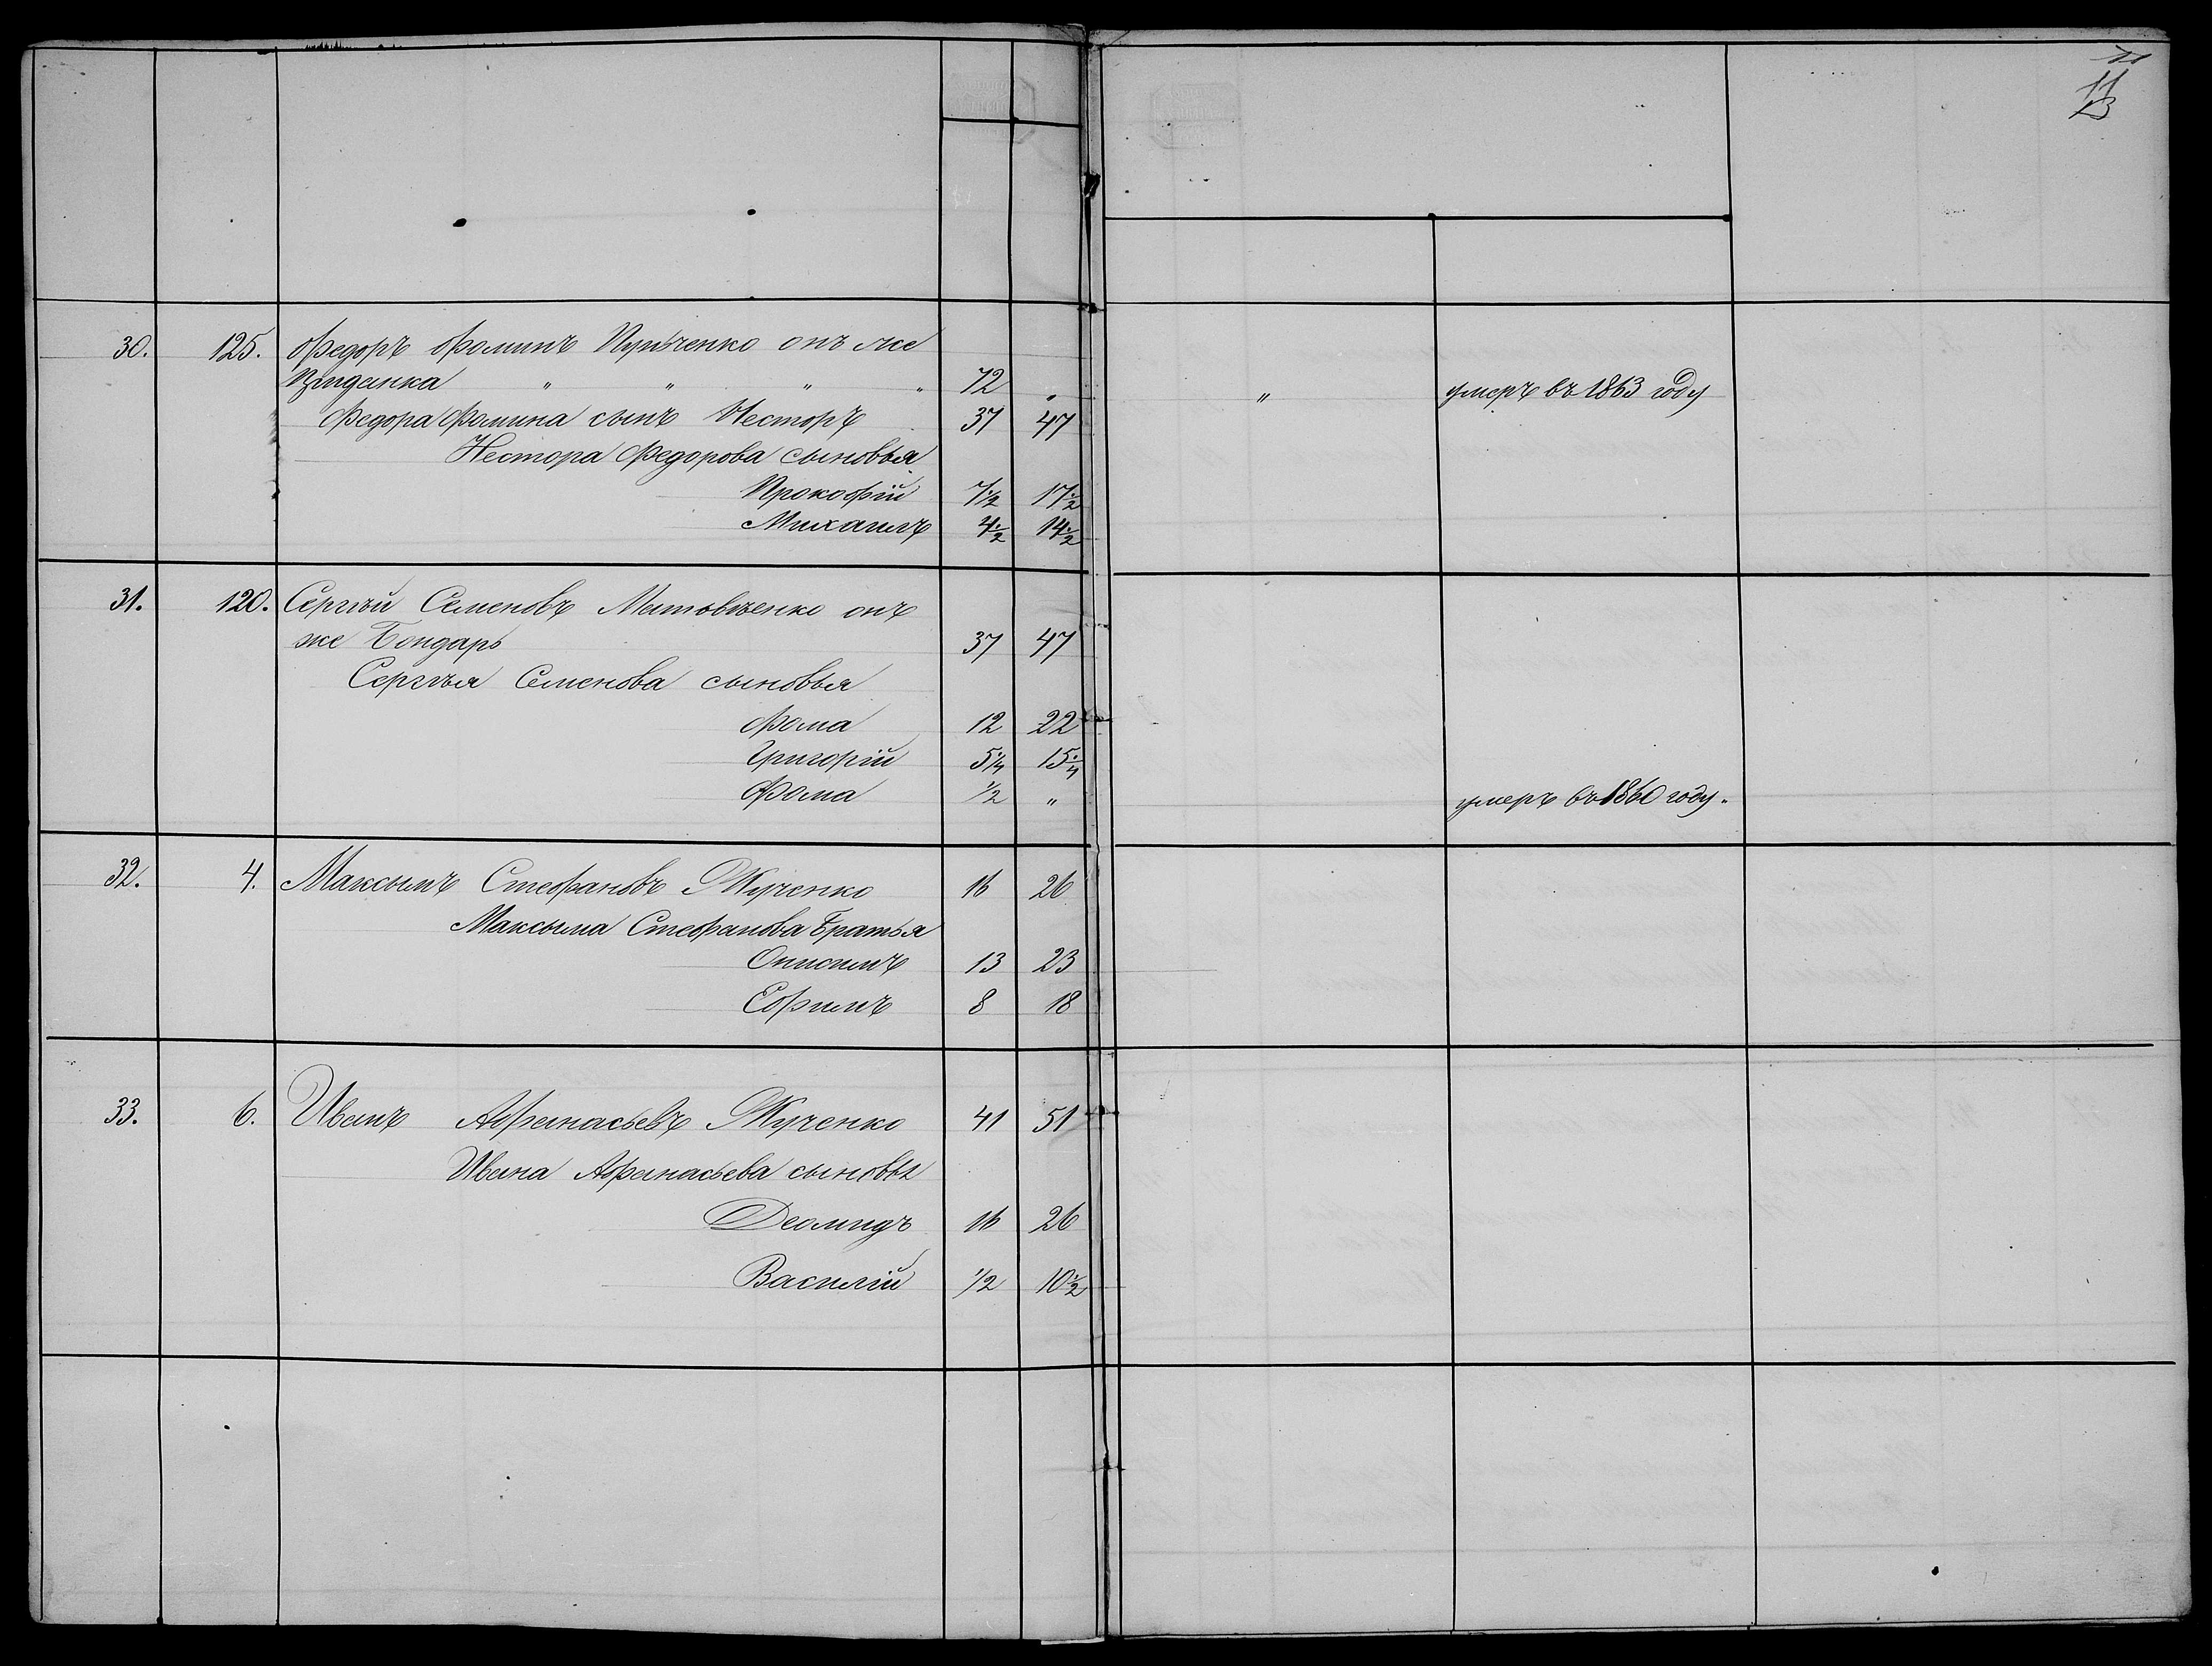 11
13
30. 125. Федоръ Фоминъ онъ же
" " " " 72 " " умеръ въ 1863 году
Федора Фомина сынъ Несторъ 37 47
Нестора Федорова сыновья
Прокофій 7 1/2 17 1/2
Михаилъ 4 1/2 14 1/2
31. 120. Сергѣй Семеновъ Матовченко онъ
же Бондарь 37 47
Сергѣя Семенова сыновья
Фома 12 22
Григорій 5 1/4 15 1/4
Фома 1/2 " умеръ въ 1860 году.
32. 4. Максымъ Стефановъ Жученко 16 26
Максыма Стефанова братья
Онисимъ 13 23
Ефимъ 8 18
33. 6. Иванъ Афанасьевъ Жученко 41 51
Ивана Афанасьева сыновья
Деомидъ 16 26
Василій 1/2 10 1/2